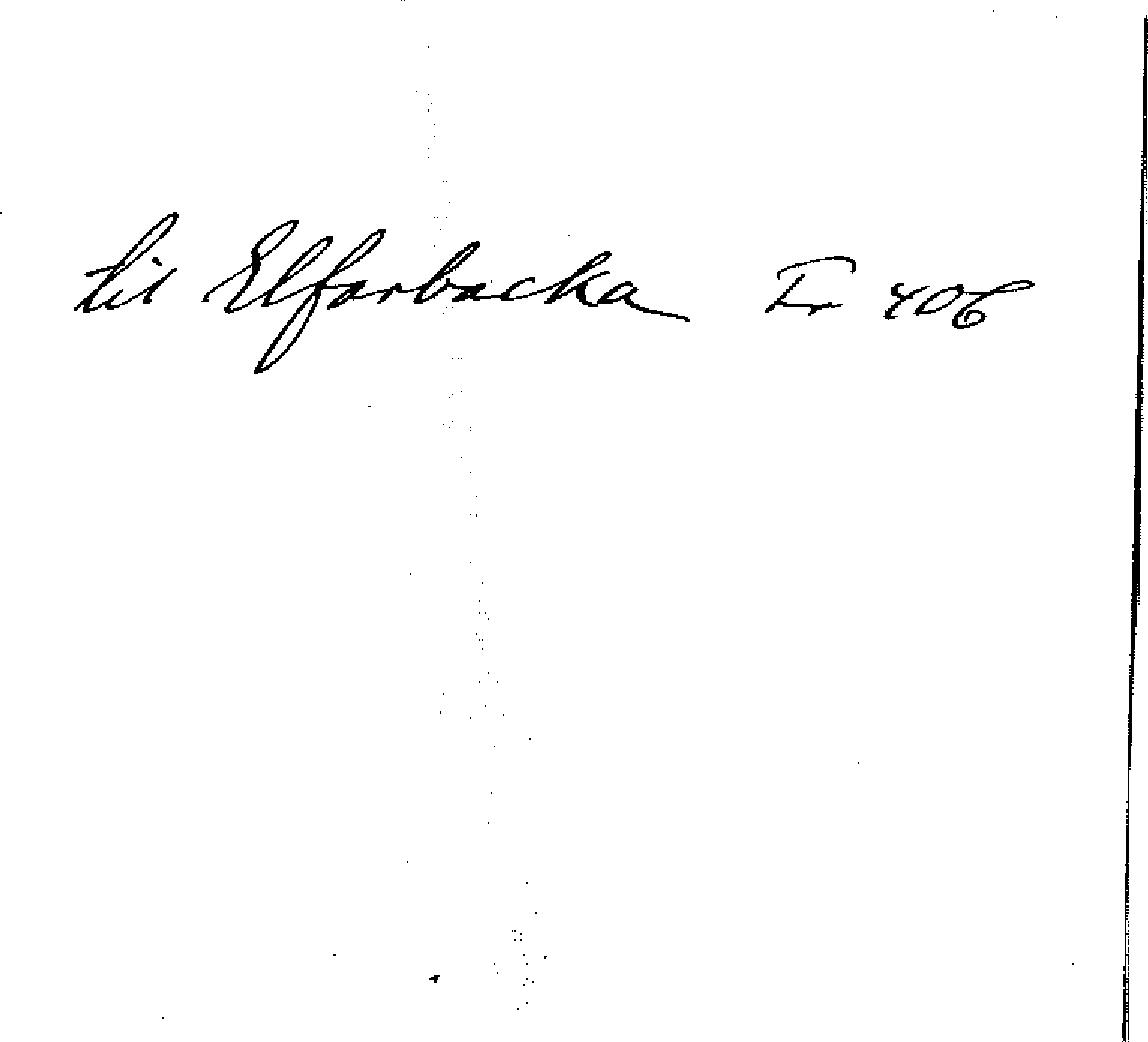 till Elfvarbacka Fr 406